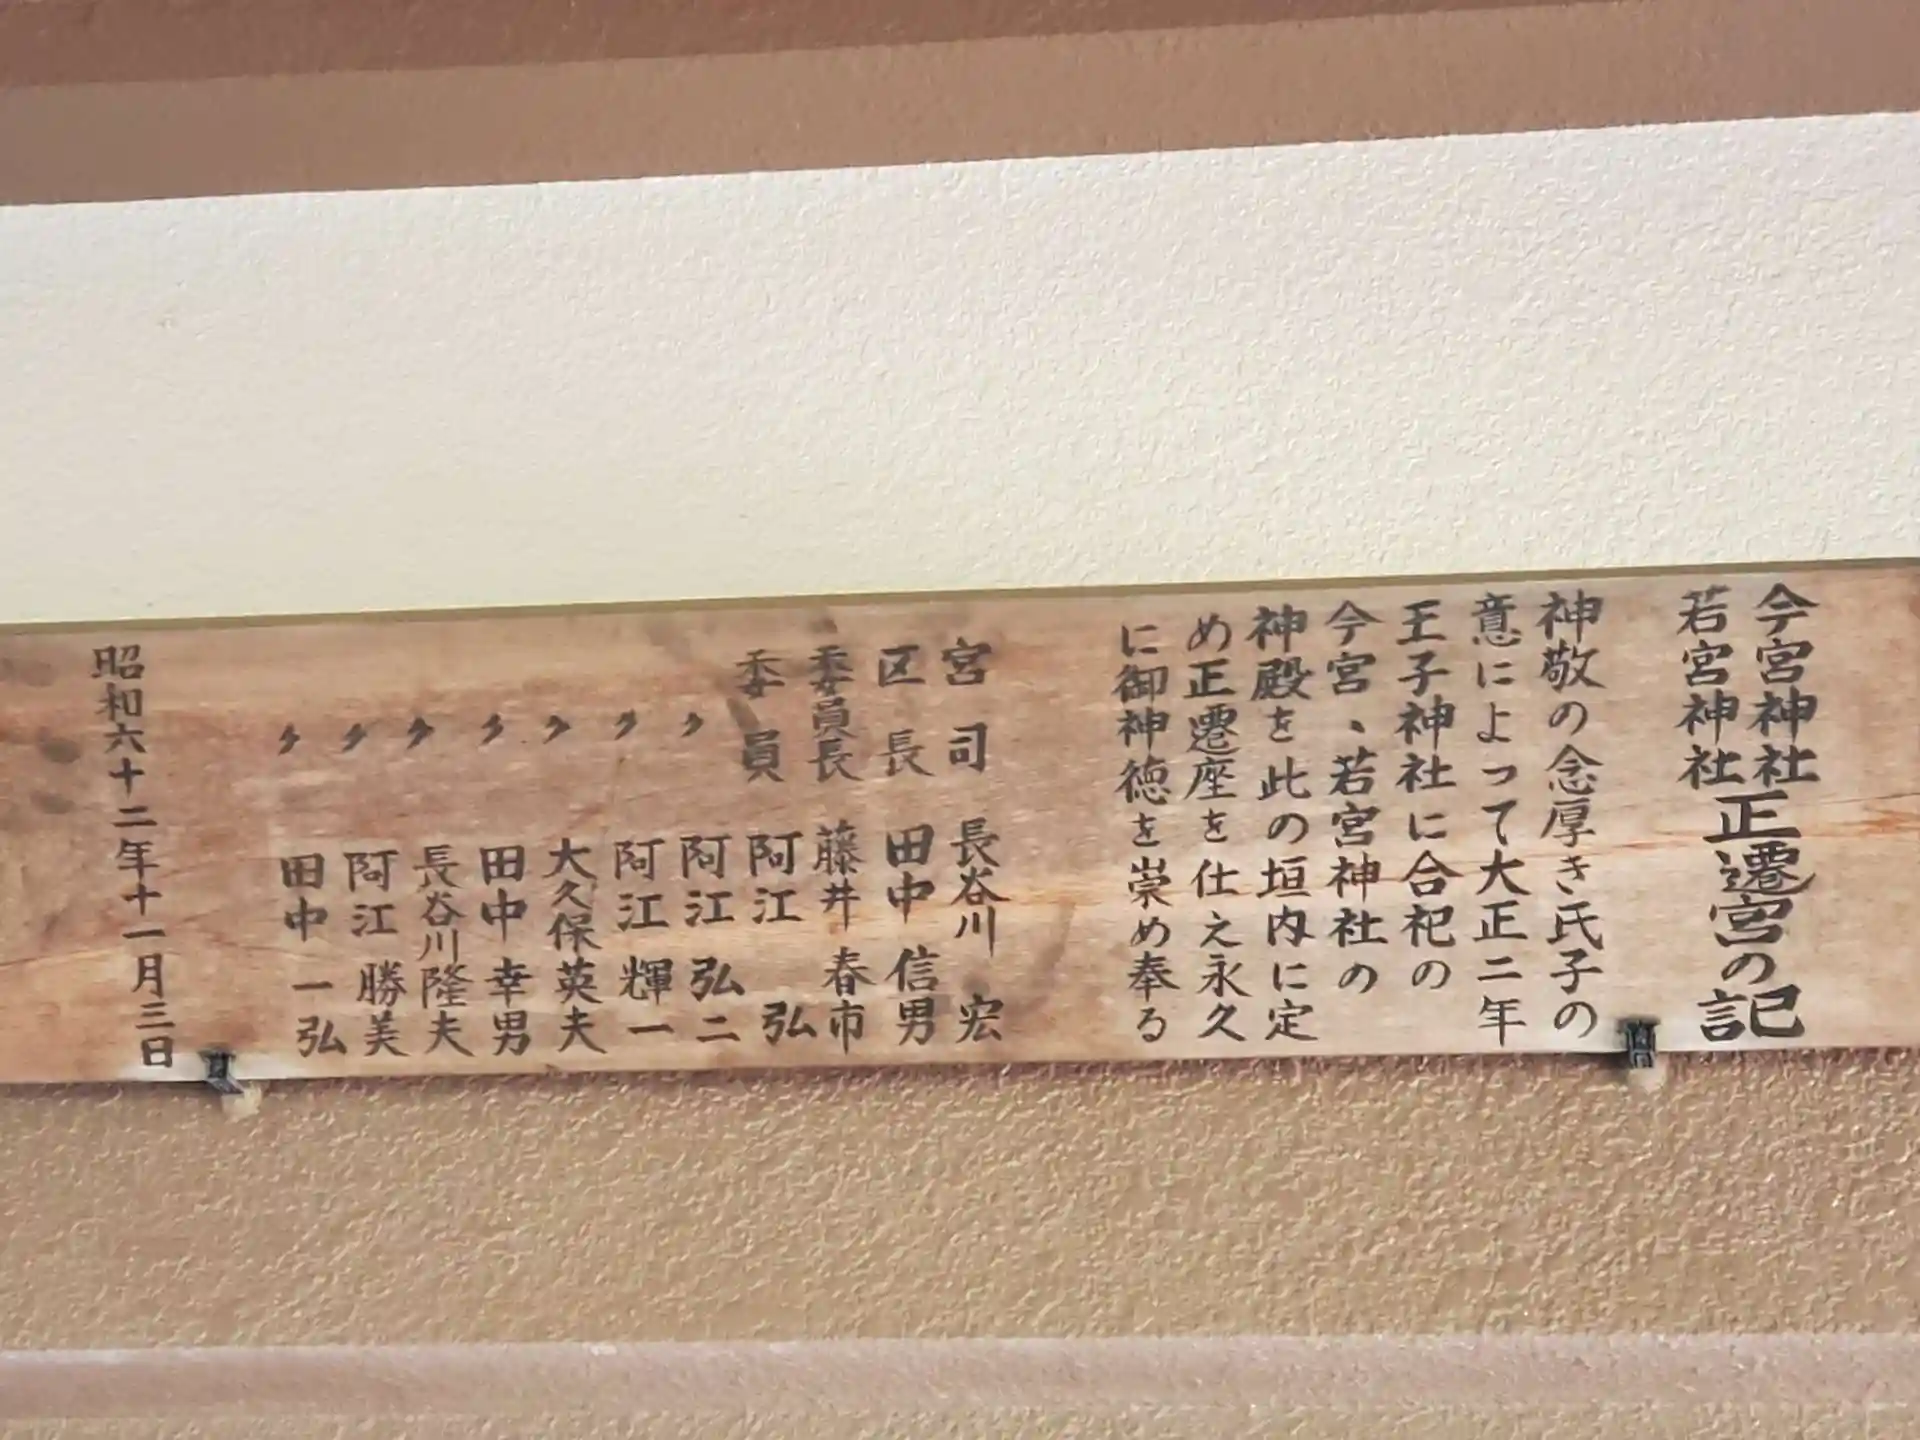 今宮神社
若宮神社
正遷宮の記
神敬の念厚き氏子の
意によって大正二年
王子神社に合祀の
今宮、若宮神社の
神殿を此の垣内に定
め正遷座を仕え永久
に御神徳を崇め奉る
宮司 長谷川 宏
区長 田中 信男
委員長 藤井 春市
委員 阿江 弘
〃 阿江 弘二
〃 阿江 輝一
〃 大久保英夫
〃 田中 幸男
〃 長谷川隆夫
〃 阿江 勝美
〃 田中 一弘
昭和六十二年十一月三日